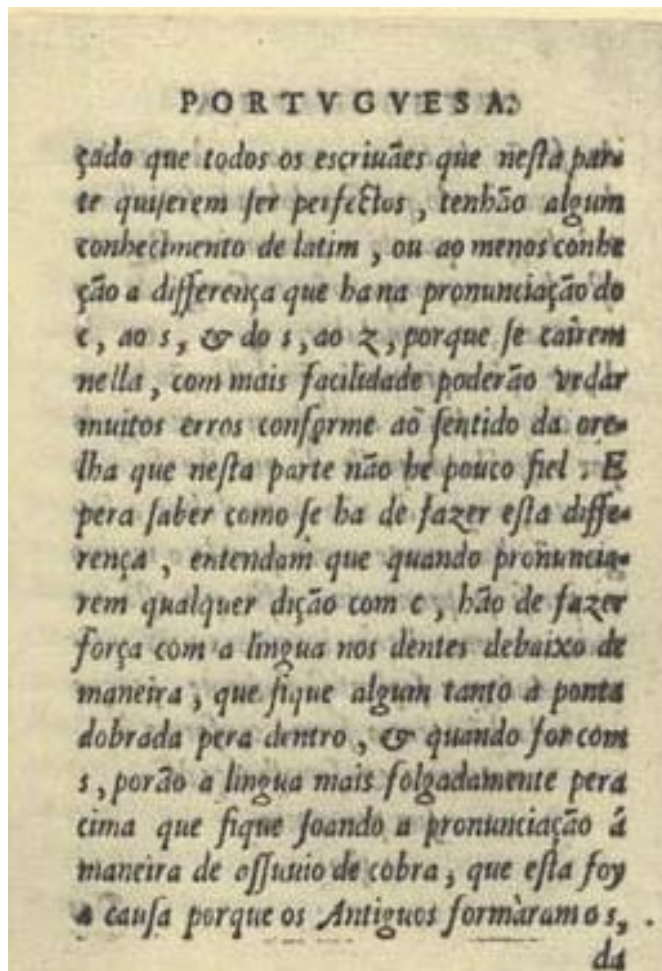 PORTVGVESA.
çado que todos os escriuães que neſta par-
te quiſerem ſer perfectos, tenhão algum
conhecimento de latim, ou ao menos conhe
ção a differença que ha na pronunciação do
c, ao s, & do s, ao z, porque ſe caîrem
nella, com mais facilidade poderão vedar
muitos erros conforme ao ſentido da ore-
lha que neſta parte não he pouco fiel. E
pera ſaber como ſe ha de fazer eſta diffe-
rença, entendam que quando pronuncia-
rem qualquer dição com c, hão de fazer
força com a lingua nos dentes debaixo de
maneira, que fique algum tanto a ponta
dobrada pera dentro, & quando for com
s, porão a lingua mais folgadamente pera
cima que fique ſoando a pronunciação á
maneira de aſſuuio de cobra, que eſta foy
a cauſa porque os Antiguos formàram o s,
da